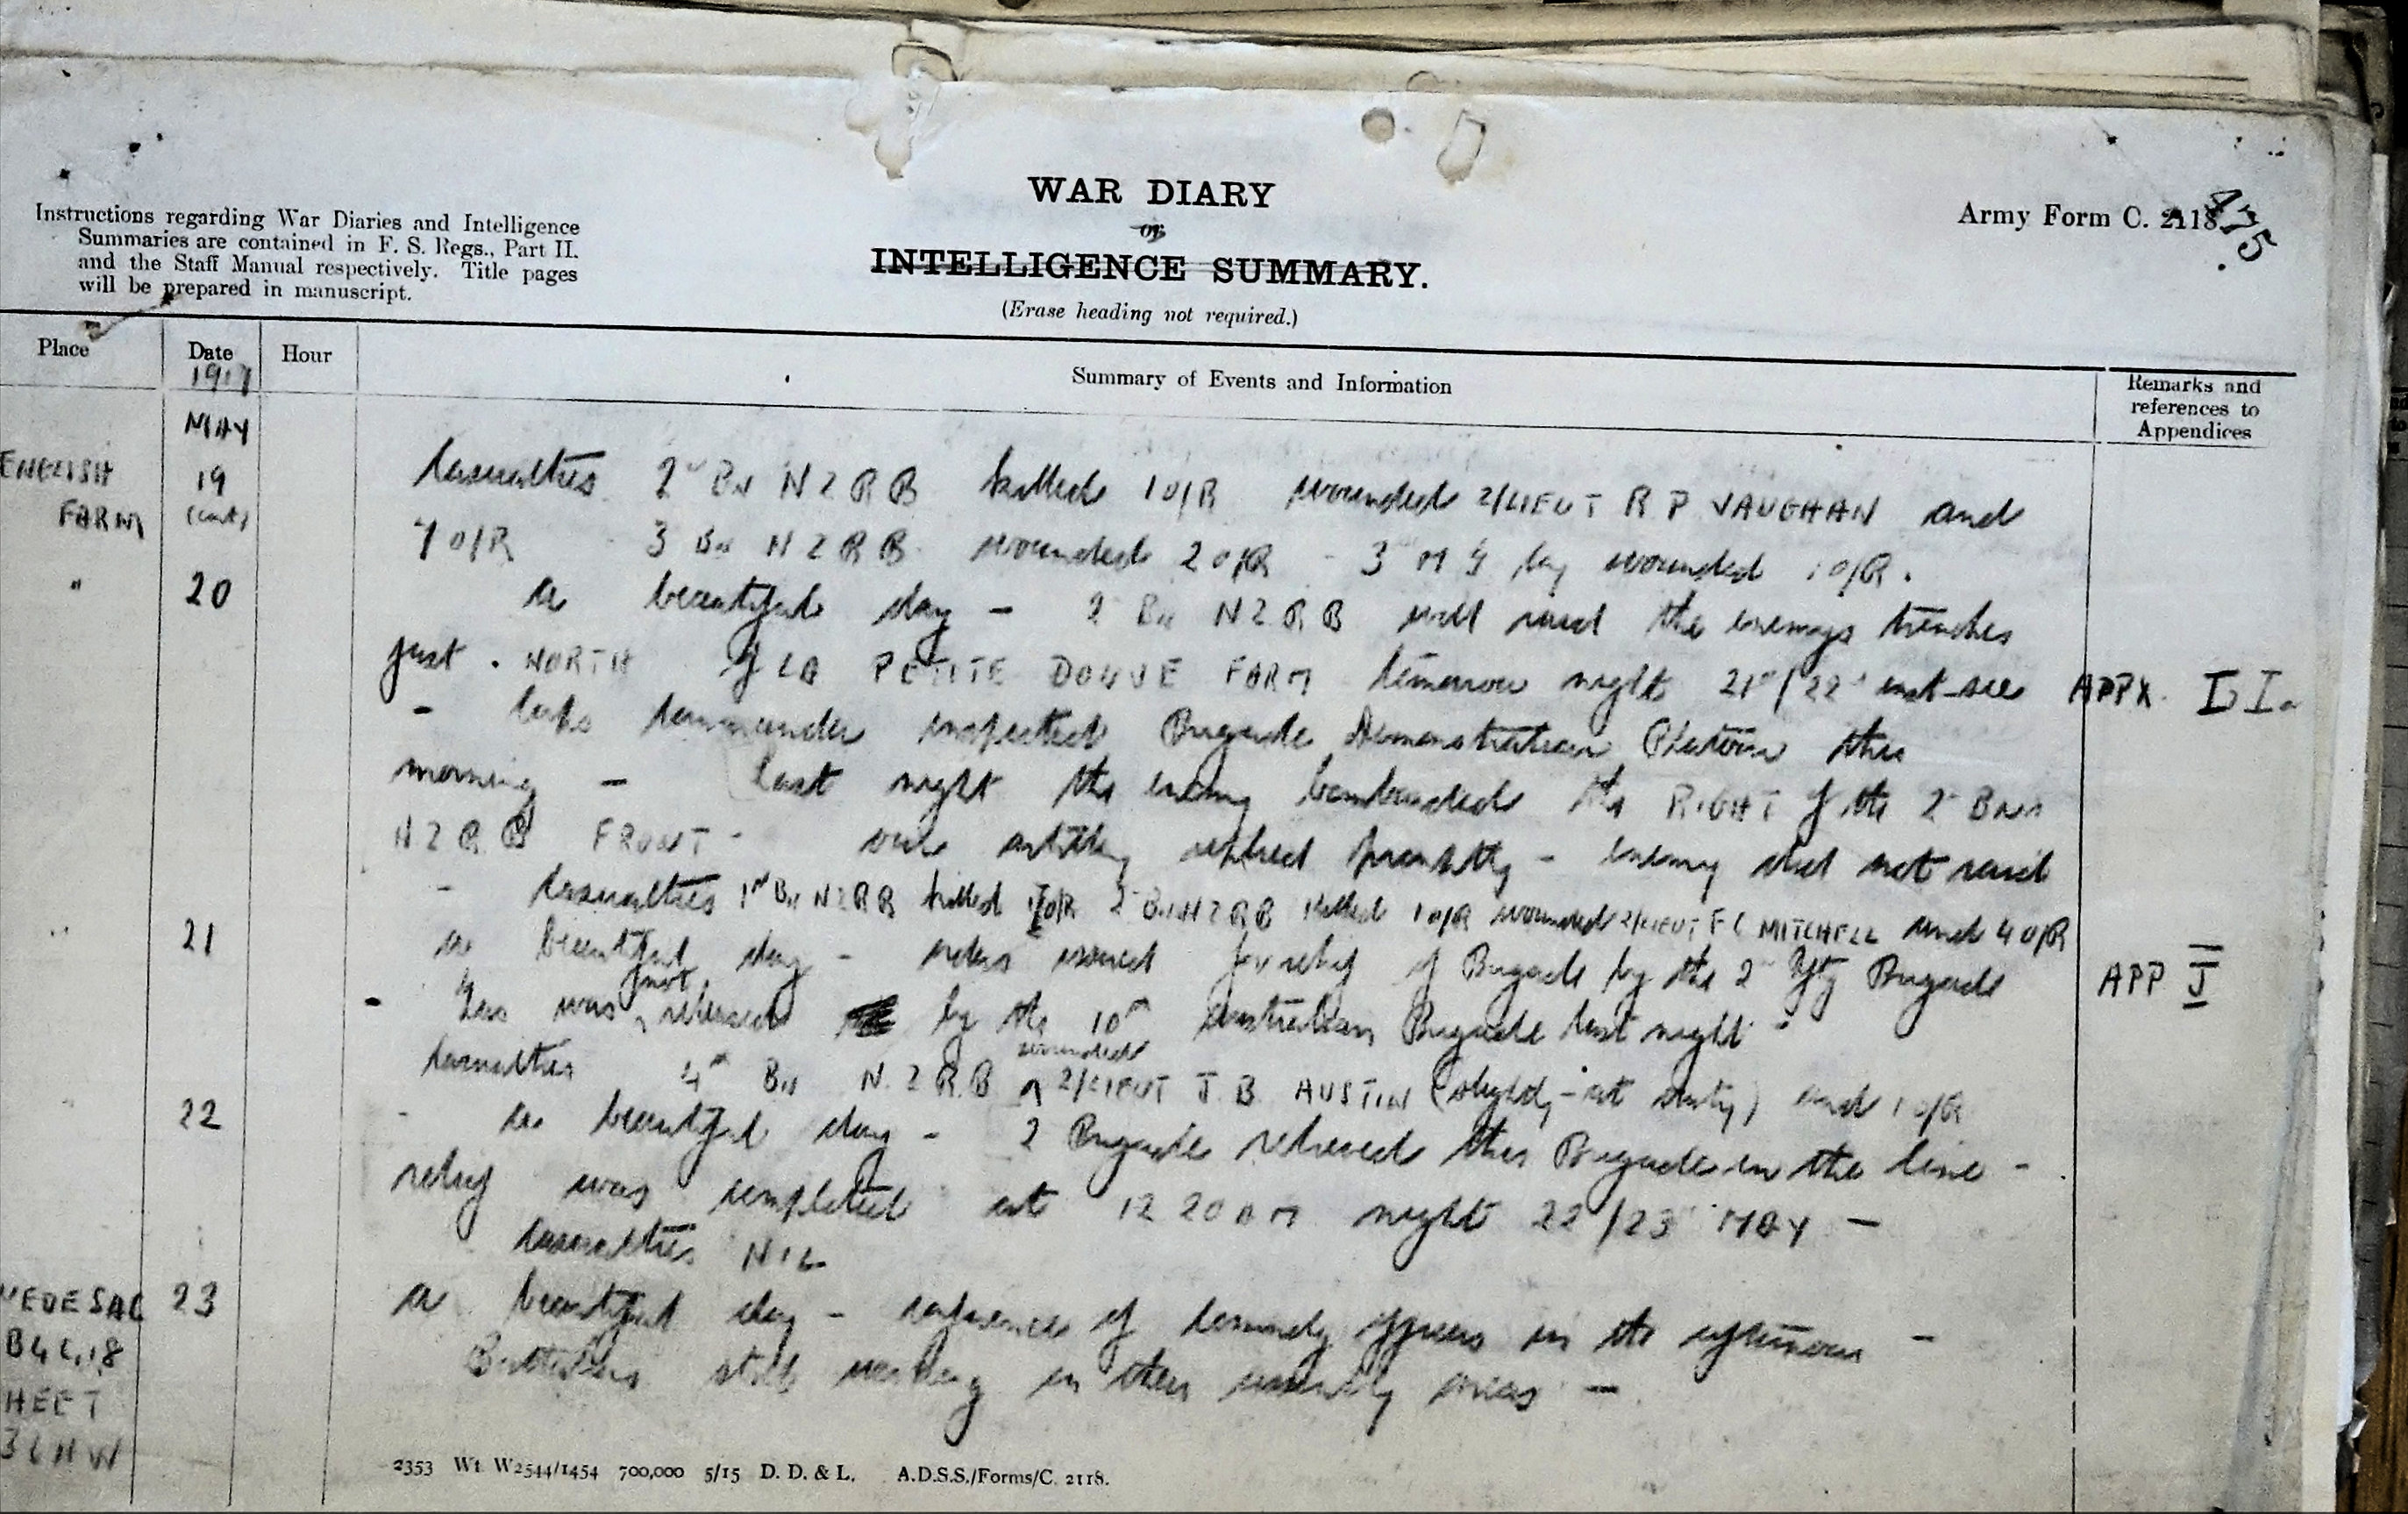 WAR DIARY
or
INTELLIGENCE SUMMARY.
(Erase heading not required.)
Instructions regarding War Diaries and Intelligence
Summaries are contained in F. S. Regs., Part II.
and the Staff Manual respectively. Title pages
will be prepared in manuscript.
Army Form C. 2118.
475
Place Date Hour Summary of Events and Information Remarks and references to Appendices
1917
MAY
ENGLISH FARM 19 (cont) Casualties 2nd Bn N Z R B killed 1 O/R wounded 2/LIEUT R P VAUGHAN and
7 O/R 3 Bn N Z R B wounded 2 O/R - 3 M G Coy wounded 1 O/R.
" 20 a beautiful day - 2 Bn N Z R B will raid the enemys trenches
just NORTH of LA PETITE DOUVE FARM tomorrow night 21st/22nd inst see APPX I, Ia
- Corps Commander inspected Brigade Demonstration Platoon this
morning - Last night the enemy bombarded the RIGHT of the 2 Bns
N Z R B FRONT - our artillery replied promptly - enemy did not raid
- Casualties 1st Bn N Z R B killed 1 O/R 2 Bn N Z R B killed 1 O/R wounded 2/LIEUT F C MITCHELL and 4 O/R
" 21 a beautiful day - orders issued for relief of Brigade by the 2nd Brigade APP J
- Gas was not released by the 10th Australian Brigade last night -
Casualties 4th Bn N.Z.R.B wounded 2/LIEUT J. B. AUSTIN (slightly - at duty) and 1 O/R
" 22 - a beautiful day - 2 Brigade relieved this Brigade in the line -
relief was completed at 12 20 AM night 22/23 MAY -
Casualties NIL
23 a beautiful day - conference of Commdg officers in the afternoon -
Battalions still working in their areas -
B4C.1.8
HEET
2353 Wt. W2544/1454 700,000 5/15 D. D. & L. A.D.S.S./Forms/C. 2118.